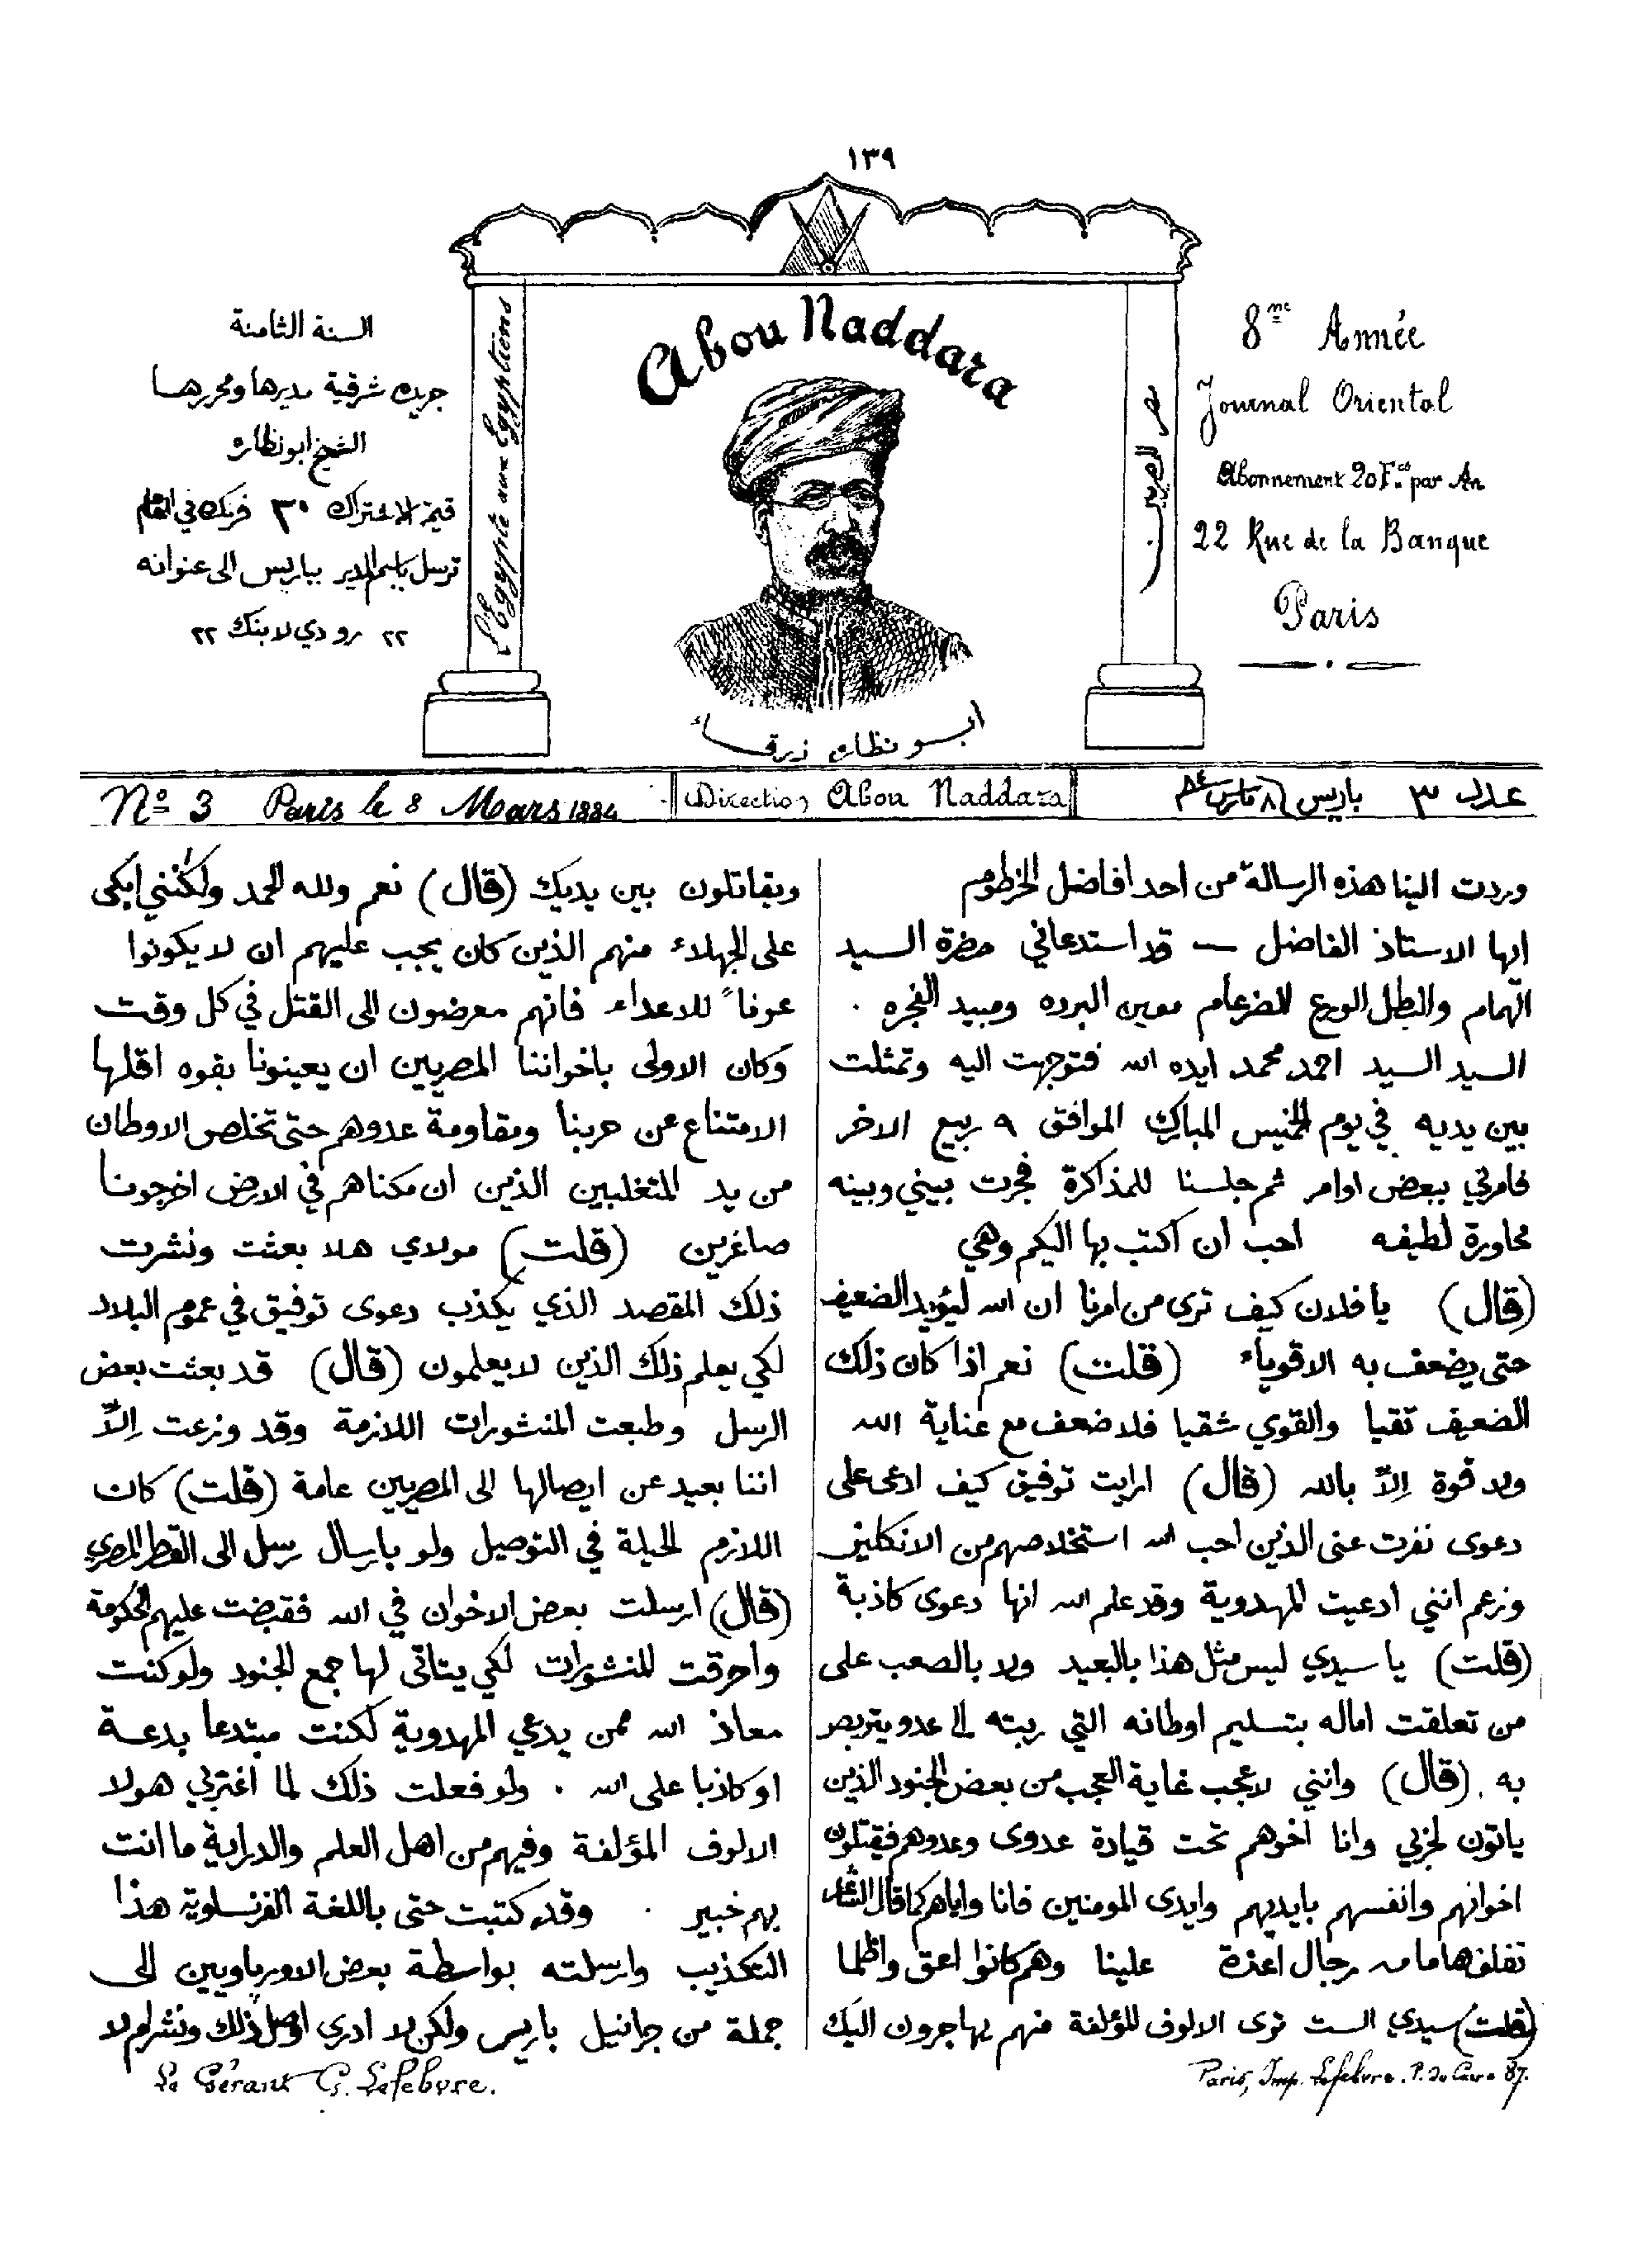 ١٣٩
السنة الثامنة
جريده شرقية مديرها ومحررها
الشيخ ابو نظاره
قيمة الاشتراك ٢٠ فرنك في العام
ترسل باسم المدير بباريس الى عنوانه
٢٢ رو دي لا بنك ٢٢
L'Egypte aux Egyptiens
Abou Naddara
ابو نظاره زرقاء
مصر للمصريين
8me Année
Journal Oriental
Abonnement 20 Fcs par An
22 Rue de la Banque
Paris
No 3 Paris le 8 Mars 1884
Direction Abou Naddara
عدد ٣ باريس ٨ مارس ٨٤
وردت الينا هذه الرسالة من احد افاضل الخرطوم
ايها الاستاذ الفاضل — قد استدعاني حضرة السيد
الهمام والبطل الورع الضرغام معين البرره ومبيد الفجره .
السيد السيد احمد محمد ايده الله فتوجهت اليه وتمثلت
بين يديه في يوم الخميس المبارك الموافق ٩ ربيع الاخر
فامرني ببعض اوامر ثم جلسنا للمذاكرة فجرت بيني وبينه
محاورة لطيفه احب ان اكتب بها اليكم وهي
(قال) يا فلان كيف ترى من امرنا ان الله ليؤيد الضعيف
حتى يضعف به الاقوياء (قلت) نعم اذا كان ذلك
الضعيف تقيا والقوي شقيا فلا ضعف مع عناية الله
ولا قوة إلاّ بالله (قال) ارايت توفيق كيف ادعى على
دعوى نفرت عنى الذين احب الله استخلاصهم من الانكليز
وزعم انني ادعيت المهدوية وقد علم الله انها دعوى كاذبة
(قلت) يا سيدي ليس مثل هذا بالبعيد ولا بالصعب على
من تعلقت اماله بتسليم اوطانه التي ربته الى عدو يتربص
به . (قال) وانني لاعجب غاية العجب من بعض الجنود الذين
ياتون لحزبي وانا اخوهم تحت قيادة عدوى وعدوهم فيقتلون
اخوانهم وانفسهم بايديهم وايدى المومنين فانا واياهم كما قال الشاعر
تفلق هاما من رجال اعزة علينا وهم كانوا اعق واظلما
(قلت) سيدي الست ترى الالوف المؤلفة منهم يهاجرون اليك
ويقاتلون بين يديك (قال) نعم ولله الحمد ولكنني ابكى
على الجهلاء منهم الذين كان يجب عليهم ان لا يكونوا
عونا للاعداء فانهم معرضون الى القتل في كل وقت
وكان الاولى باخواننا المصريين ان يعينونا بقوه اقلها
الامتناع عن حربنا ومقاومة عدوهم حتى تخلص الاوطان
من يد المتغلبين الذين ان مكناهم في الارض اخرجونا
صاغرين (قلت) مولاي هلا بعثت ونشرت
ذلك المقصد الذي يكذب دعوى توفيق في عموم البلاد
لكي يعلم ذلك الذين لا يعلمون (قال) قد بعثت بعض
الرسل وطبعت المنشورات اللازمة وقد وزعت إلاّ
اننا بعيد عن ايصالها الى المصريين عامة (قلت) كان
اللازم الحيلة في التوصيل ولو بارسال رسل الى القطر المصري
(قال) ارسلت بعض الاخوان في الله فقبضت عليهم الحكومة
واحرقت المنشورات لكي يتاتى لها جمع الجنود ولو كنت
معاذ الله ممن يدعي المهدوية لكنت مبتدعا بدعة
او كاذبا على الله . ولو فعلت ذلك لما اغتربي هولا
الالوف المؤلفة وفيهم من اهل العلم والدراية ما انت
بهم خبير . وقد كتبت حتى باللغة الفرنساوية هذا
التكذيب وارسلته بواسطة بعض الاورباويين الى
جملة من جرانيل باريس ولكن لا ادري اوصل ذلك ونشر ام لا
Paris, Imp. Lefebvre. P. du Caire 87.
Le Gérant G. Lefebvre.